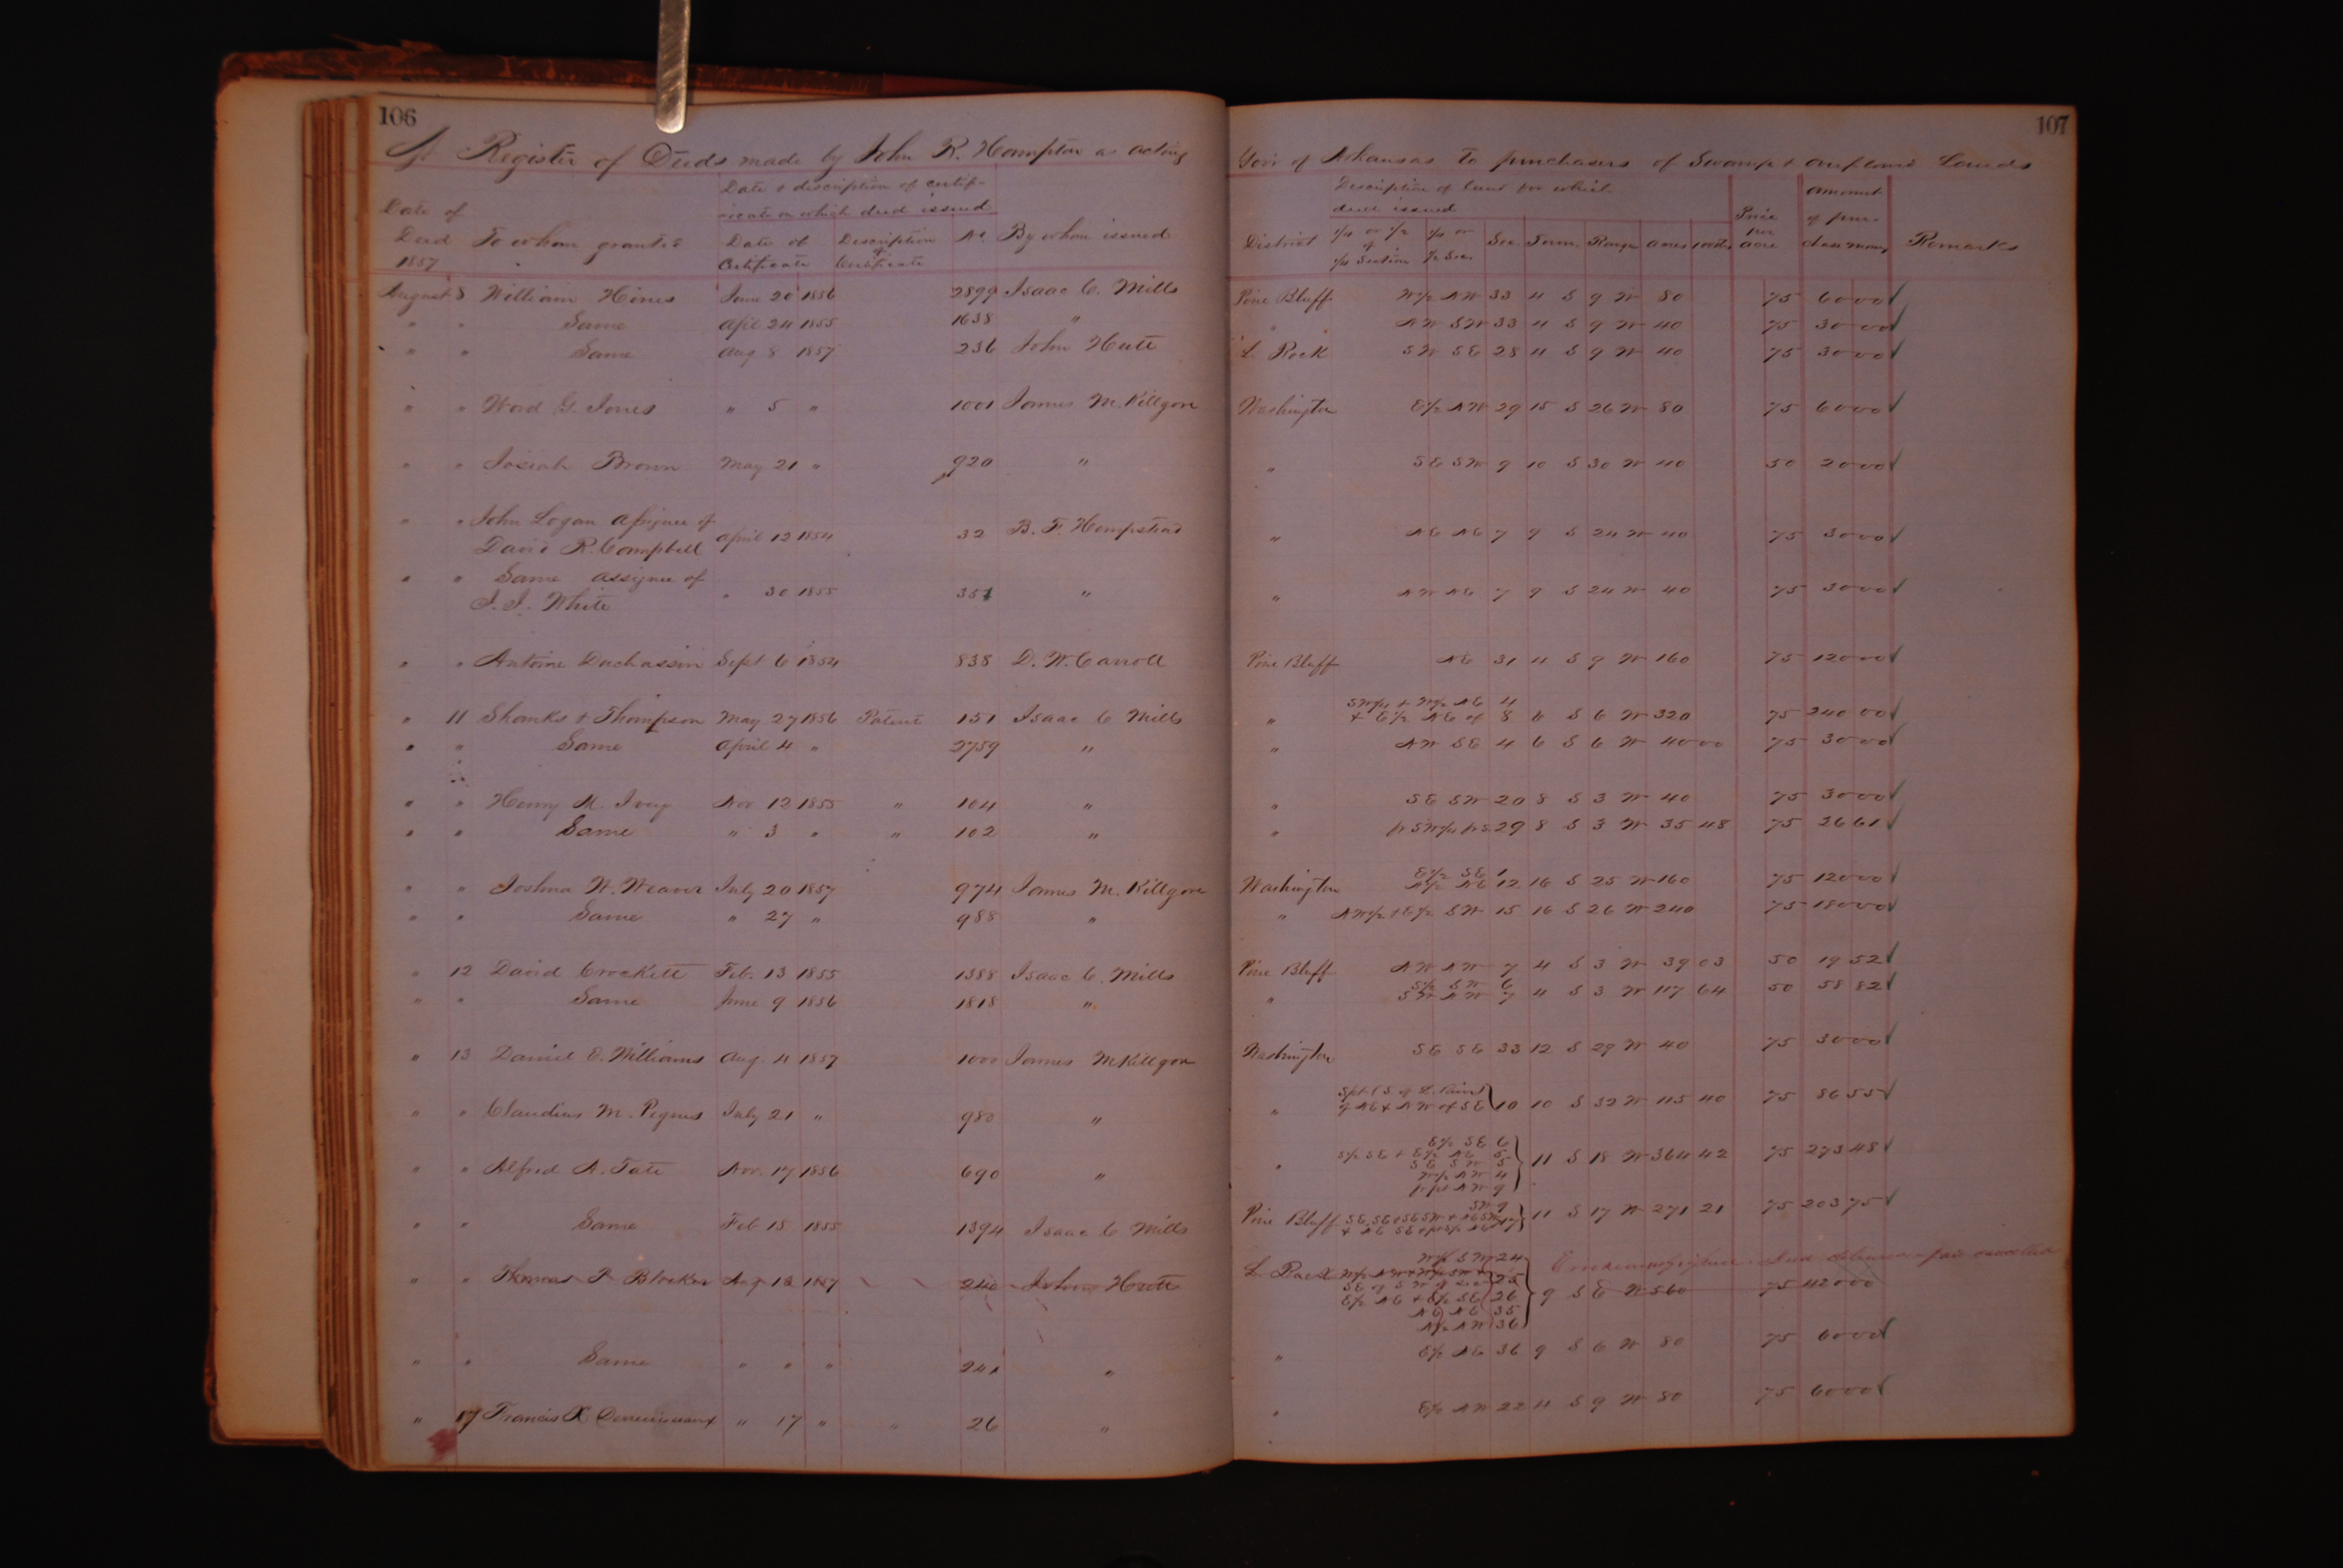 106
A Register of Deeds made by John R. Hampton as acting
Date of Deed 1857
To whom granted
Date & discription of certificate on which deed issued
Date of Certificate
Description of Certificate
No.
By whom issued
August 8 William Hines June 20 1856 2899 Isaac C. Mills
" " Same Apl. 24 1855 1638 "
" " Same Aug 8 1857 236 John Hutt
" " Word G. Jones " 5 " 1001 James M. Killgore
" " Josiah Brown May 21 " 920 "
" " John Logan Assignee of
David R. Campbell April 12 1854 32 B. F. Hempstead
" " Same assignee of
J. J. White " 30 1855 351 "
" " Antoine Duchassin Sept 6 1854 838 D. W. Carroll
" 11 Shanks & Thompson May 27 1856 Patent 151 Isaac C Mills
" " Same April 4 " 2759 "
" " Henry M. Ivey Nov 12 1855 " 104 "
" " Same " 3 " " 102 "
" " Joshua W. Weaver July 20 1857 974 James M. Killgore
" " Same " 27 " 988 "
" 12 David Crockett Feb. 13 1855 1388 Isaac C. Mills
" " Same June 9 1856 1818 "
" 13 Daniel O. Williams Aug. 4 1857 1000 James M Killgore
" " Claudius M. Pegues July 21 " 980 "
" " Alfred A. Tate Nov. 17 1856 690 "
" " Same Feb 15 1855 1394 Isaac C Mills
" " Thomas P Blocker Aug 13 1857 240 John Hutt
" " Same " " " 241 "
" 17 Francis X " 17 " " 26 "
107
Gov. of Arkansas to purchasers of Swamp & overflowed Lands
Description of land for which deed issued
District
1/4 or 1/2 of 1/4 Section
1/4 or 1/2 Sec.
Sec.
Town.
Range
acres
100ths
Price per acre
amount of purchase money
Remarks
Pine Bluff W 1/2 NW 33 4 S 9 W 80 75 60 00
" NW SW 33 4 S 9 W 40 75 30 00
L. Rock SW SE 28 4 S 9 W 40 75 30 00
Washington E 1/2 NW 29 15 S 26 W 80 75 60 00
" SE SW 9 10 S 30 W 40 50 20 00
" NE NE 7 9 S 24 W 40 75 30 00
" NW NE 7 9 S 24 W 40 75 30 00
Pine Bluff NE 31 4 S 9 W 160 75 120 00
SW 1/4 & W 1/2 NE 4
" & E 1/2 NE of 8 6 S 6 W 320 75 240 00
" NW SE 4 6 S 6 W 40 00 75 30 00
" SE SW 20 8 S 3 W 40 75 30 00
" 29 8 S 3 W 35 48 75 26 61
E 1/2 SE 1
Washington N 1/2 NE 12 16 S 25 W 160 75 120 00
" NW 1/2 & E 1/2 SW 15 16 S 26 W 240 75 180 00
Pine Bluff NW NW 7 4 S 3 W 39 03 50 19 52
S 1/2 SW 6
" SW NW 7 4 S 3 W 117 64 50 58 82
Washington SE SE 33 12 S 29 W 40 75 30 00
" NE & NW of SE 10 10 S 32 W 115 40 75 86 55
E 1/2 SE 6
S 1/2 SE & E 1/2 NE 5
" SE SW 5 11 S 18 W 364 42 75 273 48
W 1/2 NW 4
NW 9
SW 9
Pine Bluff SE SE & SE SW & NE SW 17 11 S 17 W 271 21 75 203 75
W 1/2 SW 24
L Rock W 1/2 NW & W 1/2 SW & 25
E 1/2 NE & E 1/2 SE 26 9 S 6 W 560 75 420 00
NE NE 35
N 1/2 NW 36
" E 1/2 NE 36 9 S 6 W 80 75 60 00
" E 1/2 NW 22 4 S 9 W 80 75 60 00